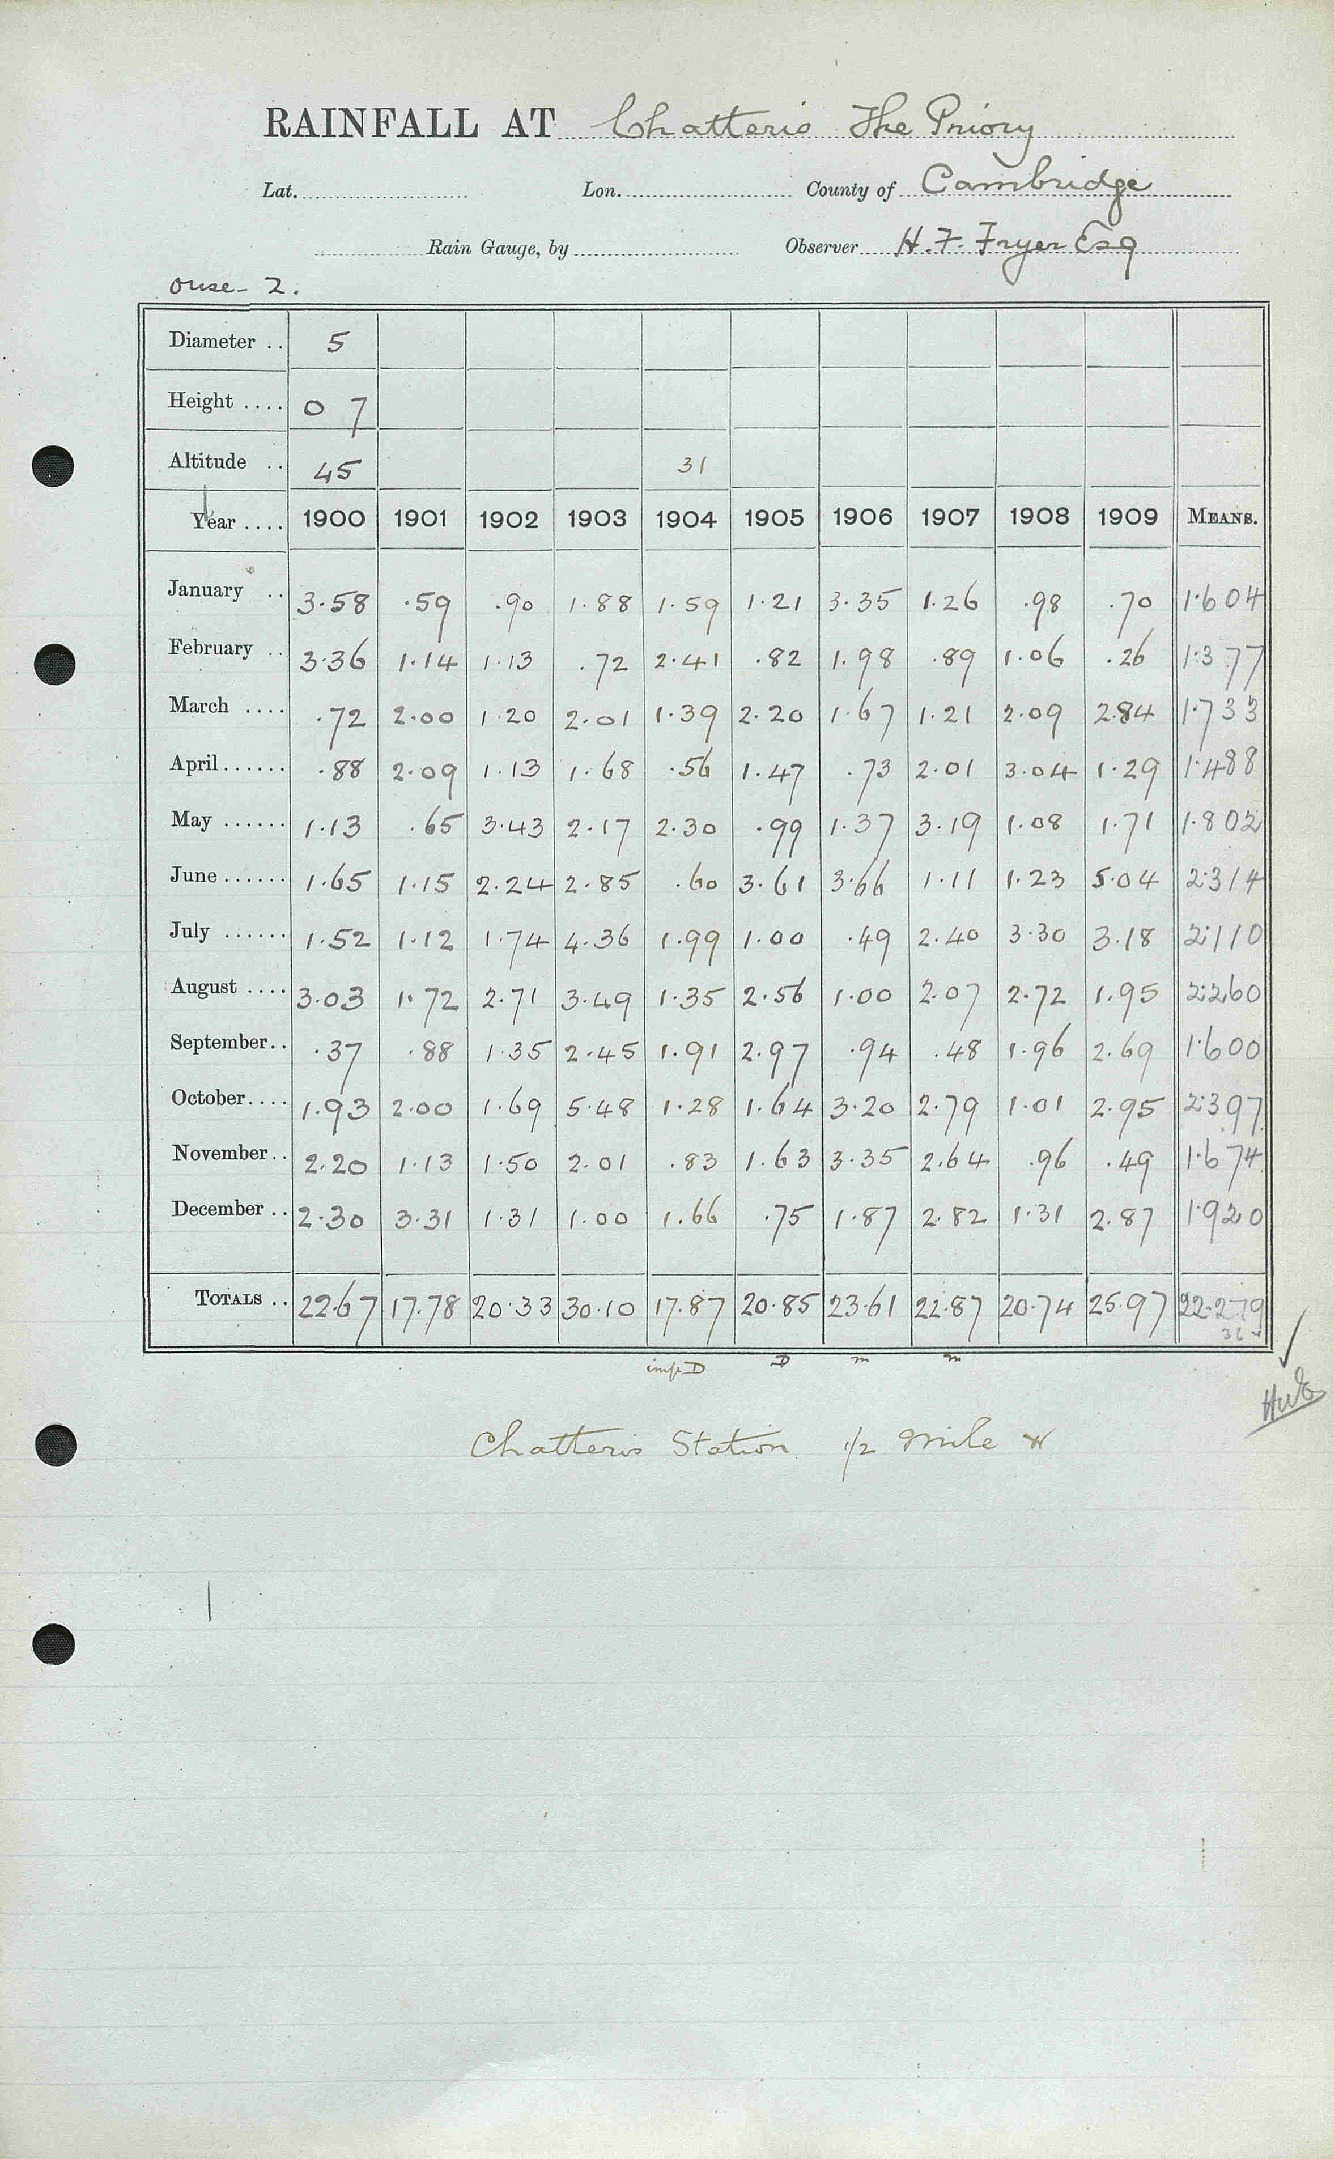 RAINFALL AT Chatteris The Priory
Lat. Lon. County of Cambridge
Rain Gauge, by Observer H. F. Fryer Esq
Ouse - 2.
Diameter .. 5
Height .... 0 7
Altitude .. 45 31
Year .... 1900 1901 1902 1903 1904 1905 1906 1907 1908 1909 MEANS.
January .. 3.58 .59 .90 1.88 1.59 1.21 3.35 1.26 .98 .70 1.604
February .. 3.36 1.14 1.13 .72 2.41 .82 1.98 .89 1.06 .26 1.377
March .... .72 2.00 1.20 2.01 1.39 2.20 1.67 1.21 2.09 2.84 1.733
April...... .88 2.09 1.13 1.68 .56 1.47 .73 2.01 3.04 1.29 1.488
May ...... 1.13 .65 3.43 2.17 2.30 .99 1.37 3.19 1.08 1.71 1.802
June ...... 1.65 1.15 2.24 2.85 .60 3.61 3.66 1.11 1.23 5.04 2.314
July ...... 1.52 1.12 1.74 4.36 1.99 1.00 .49 2.40 3.30 3.18 2.110
August .... 3.03 1.72 2.71 3.49 1.35 2.56 1.00 2.07 2.72 1.95 2.260
September.. .37 .88 1.35 2.45 1.91 2.97 .94 .48 1.96 2.69 1.600
October.... 1.93 2.00 1.69 5.48 1.28 1.64 3.20 2.79 1.01 2.95 2.397
November.. 2.20 1.13 1.50 2.01 .83 1.63 3.35 2.64 .96 .49 1.674
December .. 2.30 3.31 1.31 1.00 1.66 .75 1.87 2.82 1.31 2.87 1.920
TOTALS .. 22.67 17.78 20.33 30.10 17.87 20.85 23.61 22.87 20.74 25.97 22.279
imp D D m m
Chatteris Station 1/2 mile W